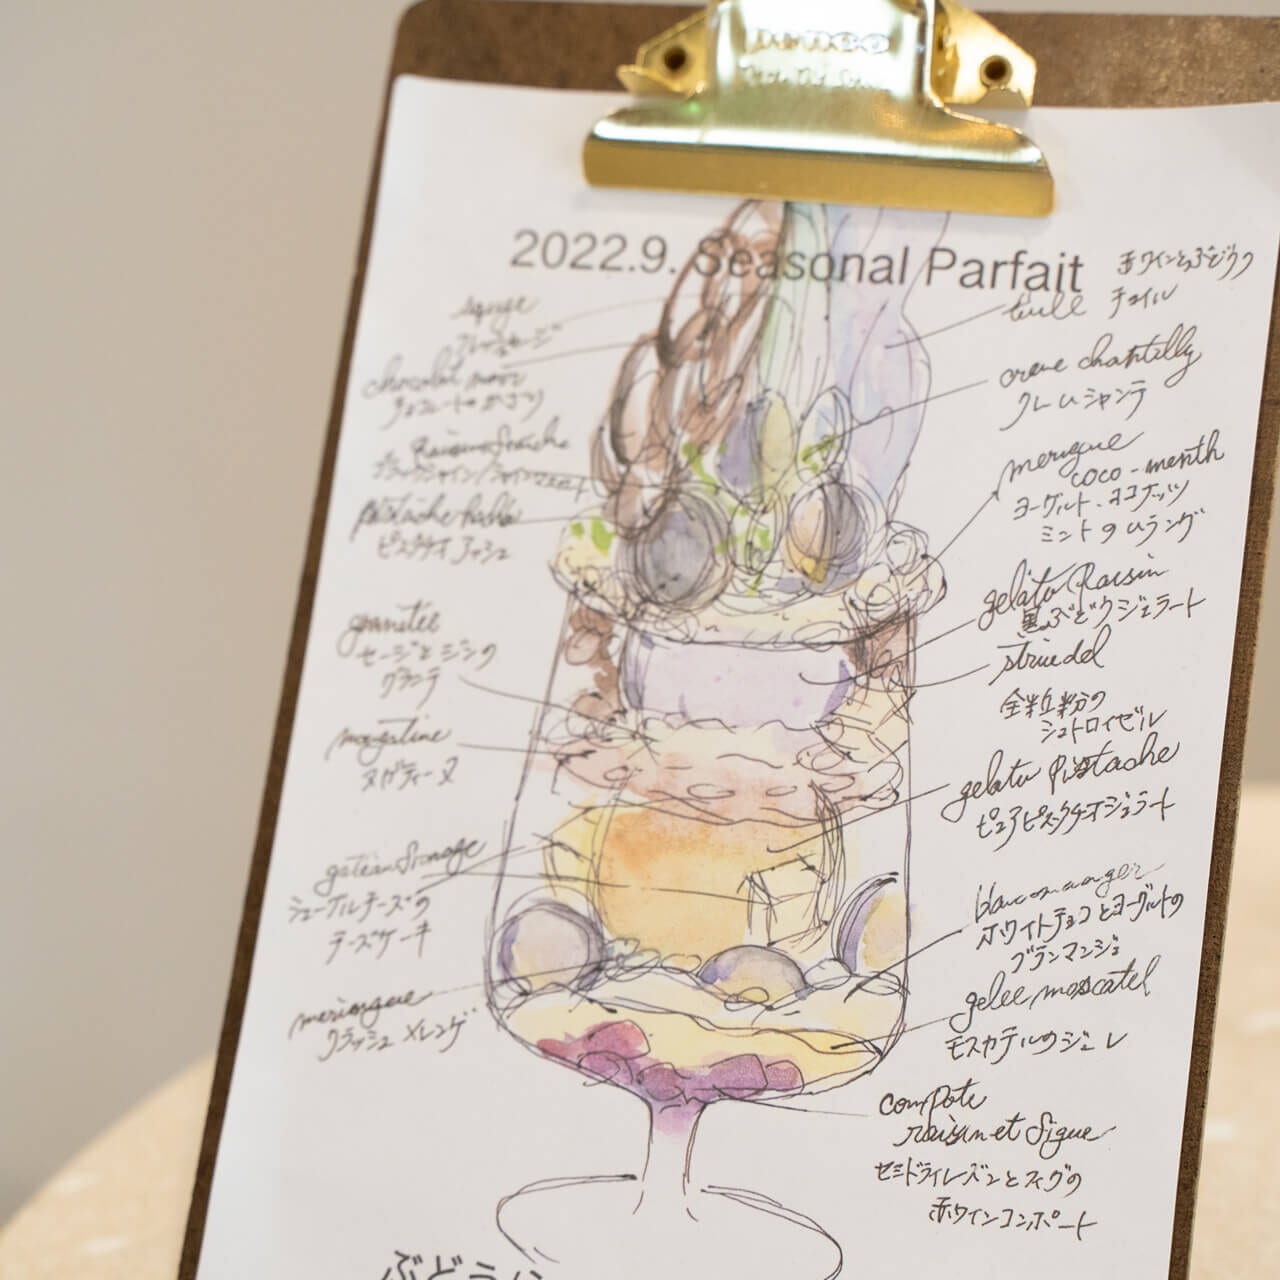 2022.9. Seasonal Parfait
赤ワインとぶどうの
tuile チュイル
sauge
chocolat noir
creme chantilly
クレームシャンティ
pistache hache
ピスタチオアッシュ
meringue
coco-menth
ヨーグルト、ココナッツ
ミントのムラング
granitée
セージとジンの
グラニテ
gelato Raisin
黒ぶどうジェラート
strudel
全粒粉の
シュトロイゼル
nougatine
ヌガティーヌ
gelato pistache
ピュアピスタチオジェラート
gateau fromage
シェーブルチーズの
チーズケーキ
blancmanger
ホワイトチョコとヨーグルトの
ブランマンジェ
meringue
クラッシュメレンゲ
gelee moscatel
モスカテルのジュレ
compote
raisin et figue
セミドライレーズンとフィグの
赤ワインコンポート
ぶどう